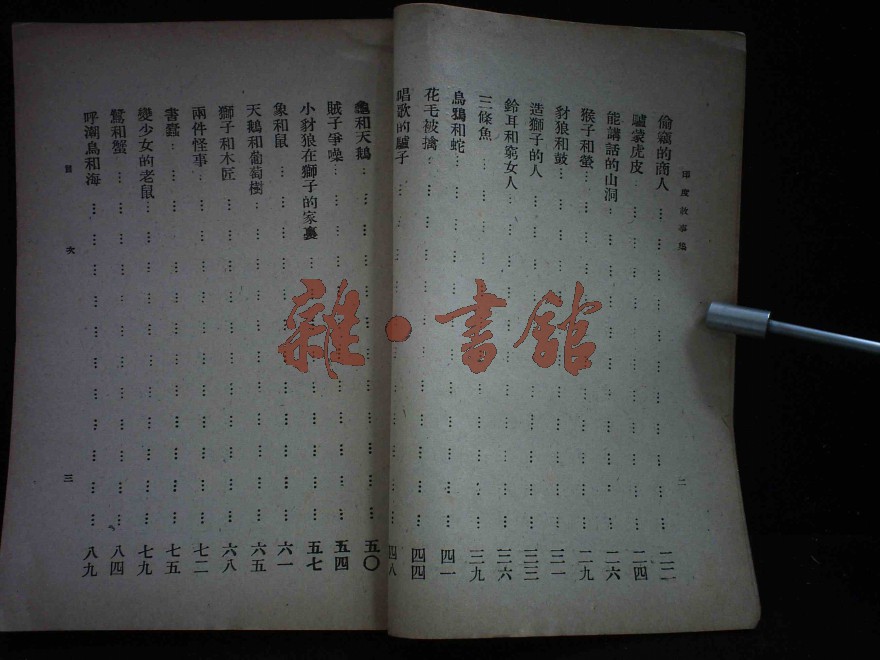 印度故事集
偷竊的商人 二二
驢蒙虎皮 二四
能講話的山洞 二六
猴子和螢 二九
豺狼和鼓 三一
造獅子的人 三三
鈴耳和窮女人 三六
三條魚 三九
烏鴉和蛇 四一
花毛被擒 四四
唱歌的驢子 四八
二
龜和天鵝 五〇
賊子爭噪 五四
小豺狼在獅子的家裏 五七
象和鼠 六一
天鵝和葡萄樹 六五
獅子和木匠 六八
兩件怪事 七二
書蠹 七五
變少女的老鼠 七九
鷺和蟹 八四
呼潮鳥和海 八九
目次
三
雜·書館